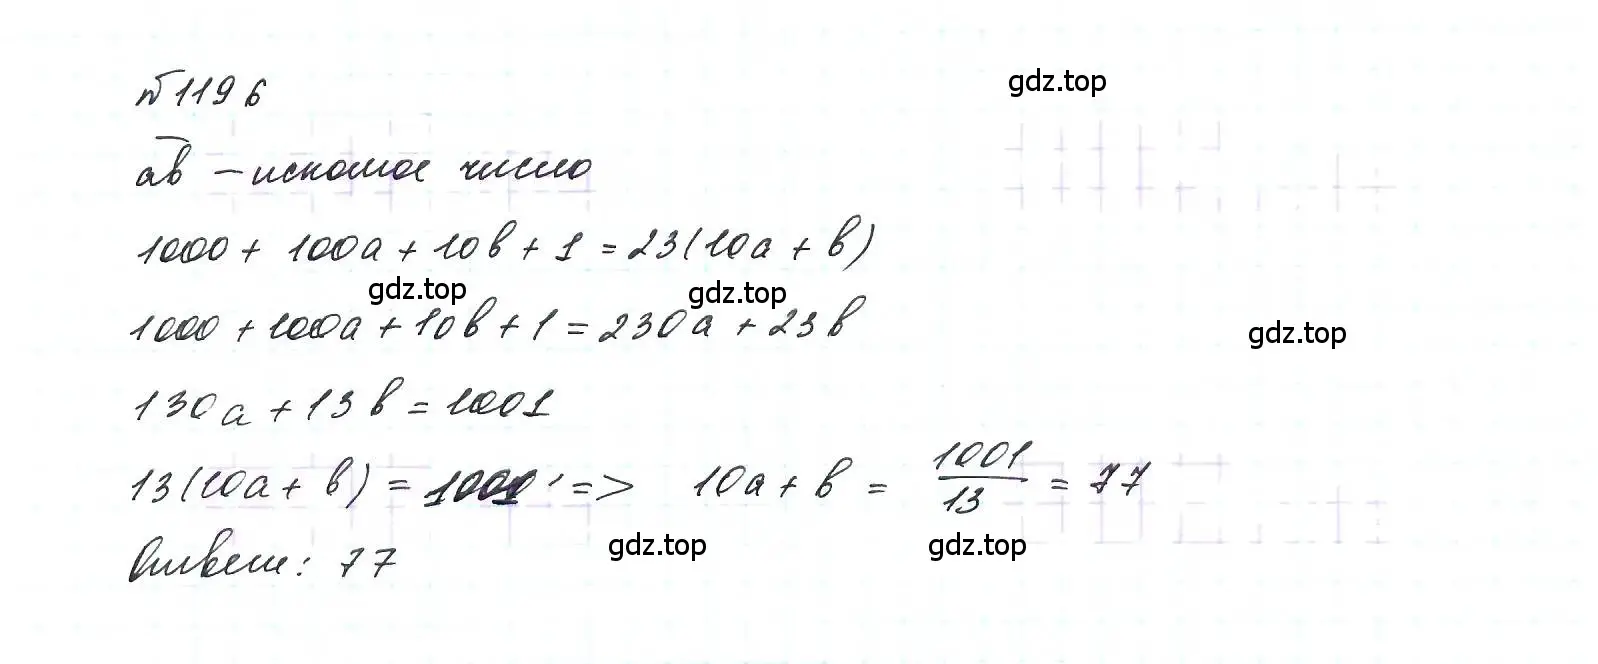 №1196
gdz.top
ав – искомое число
1000 + 100а + 10в + 1 = 23(10а + в)
gdz.top
gdz.top
1000 + 100а + 10в + 1 = 230а + 23в
gdz.top
130а + 13в = 1001
13(10а + в) = 1001 => 10а + в = 1001/13 = 77
gdz.top
gdz.top
Ответ: 77